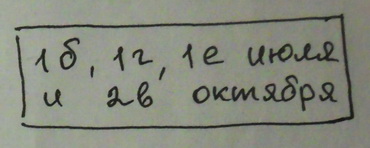 1б, 1г, 1е июля
и 2в октября